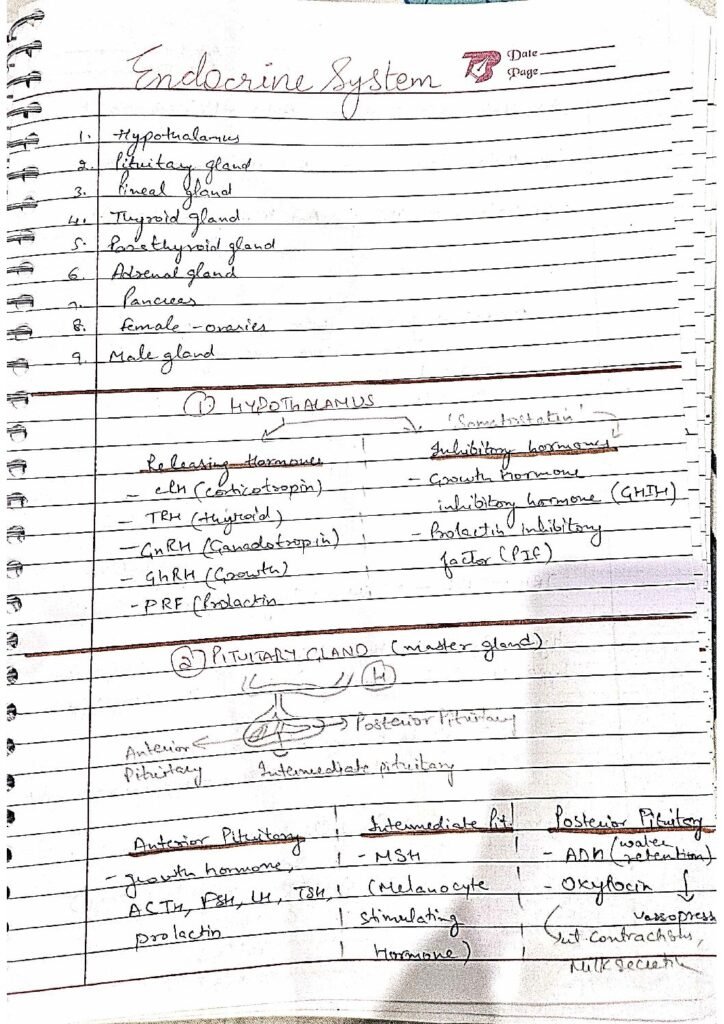 Endocrine System
RB Date
Page
1. Hypothalamus
2. Pituitary gland
3. Pineal gland
4. Thyroid gland
5. Parathyroid gland
6. Adrenal gland
7. Pancreas
8. female - ovaries
9. Male gland
① HYPOTHALAMUS
'Somatostatin'
Releasing Hormones
- CRH (corticotropin)
- TRH (thyroid)
- GnRH (Gonadotropin)
- GhRH (Growth)
- PRF (Prolactin
Inhibitory hormones
- Growth Hormone
inhibitory hormone (GHIH)
- Prolactin inhibitory
factor (PIF)
② PITUITARY GLAND (master gland)
H
Posterior Pituitary
Anterior
Pituitary
Intermediate pituitary
Anterior Pituitary
- growth hormone,
ACTH, FSH, LH, TSH,
prolactin
Intermediate Pit.
- MSH
(Melanocyte
Stimulating
Hormone)
Posterior Pituitary
- ADH (water
retention)
- Oxytocin
vassopress
contractions,
Milk secretion